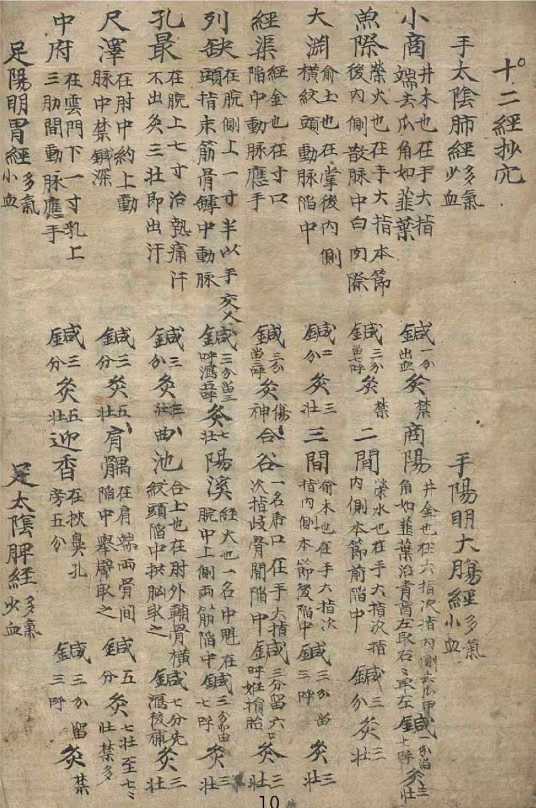 十二經抄穴
手太陰肺經 多氣少血
小商 井木也在手大指端去爪角如韭葉
鍼一分出血 灸禁
魚際 榮火也在手大指本節後內側散脉中白肉際
鍼二分 灸禁
大淵 俞土也在掌後內側橫紋頭動脉陷中
鍼二分 灸三壯
經渠 經金也在寸口陷中動脉應手
鍼三分 灸傷神
列缺 在腕側上一寸半以手交叉頭指末筋骨罅中動脉
鍼三分留三呼瀉五呼 灸七壯
孔最 在腕上七寸治熱痛汗不出灸三壯即出汗
鍼三分 灸三壯
尺澤 在肘中約上動脉中禁鍼深
鍼三分 灸五壯
中府 在雲門下一寸乳上三肋間動脉應手
鍼三分 灸五壯
手陽明大膓經 多氣小血
商陽 井金也在大指次指內側去爪甲角如韭葉
鍼一分留一呼 灸三壯
二間 榮水也在手大指次指內側本節前陷中
鍼三分 灸三壯
三間 俞木也在手大指次指內側本節後陷中
鍼三分留三呼 灸三壯
合谷 一名虎口在手大指次指歧骨間陷中
鍼三分留六呼妊損胎 灸三壯
陽溪 經火也一名中魁在腕中上側兩筋陷中
鍼三分留七呼 灸三壯
曲池 合土也在肘外輔骨橫紋頭陷中拱胸取之
鍼七分先瀉後補 灸三壯
肩髃 在肩端兩骨間陷中舉臂取之
鍼五分 灸七壯至七七壯禁多
迎香 在挾鼻孔旁五分
鍼三分留三呼 灸禁
足陽明胃經 多氣小血
足太陰脾經 多氣少血
10